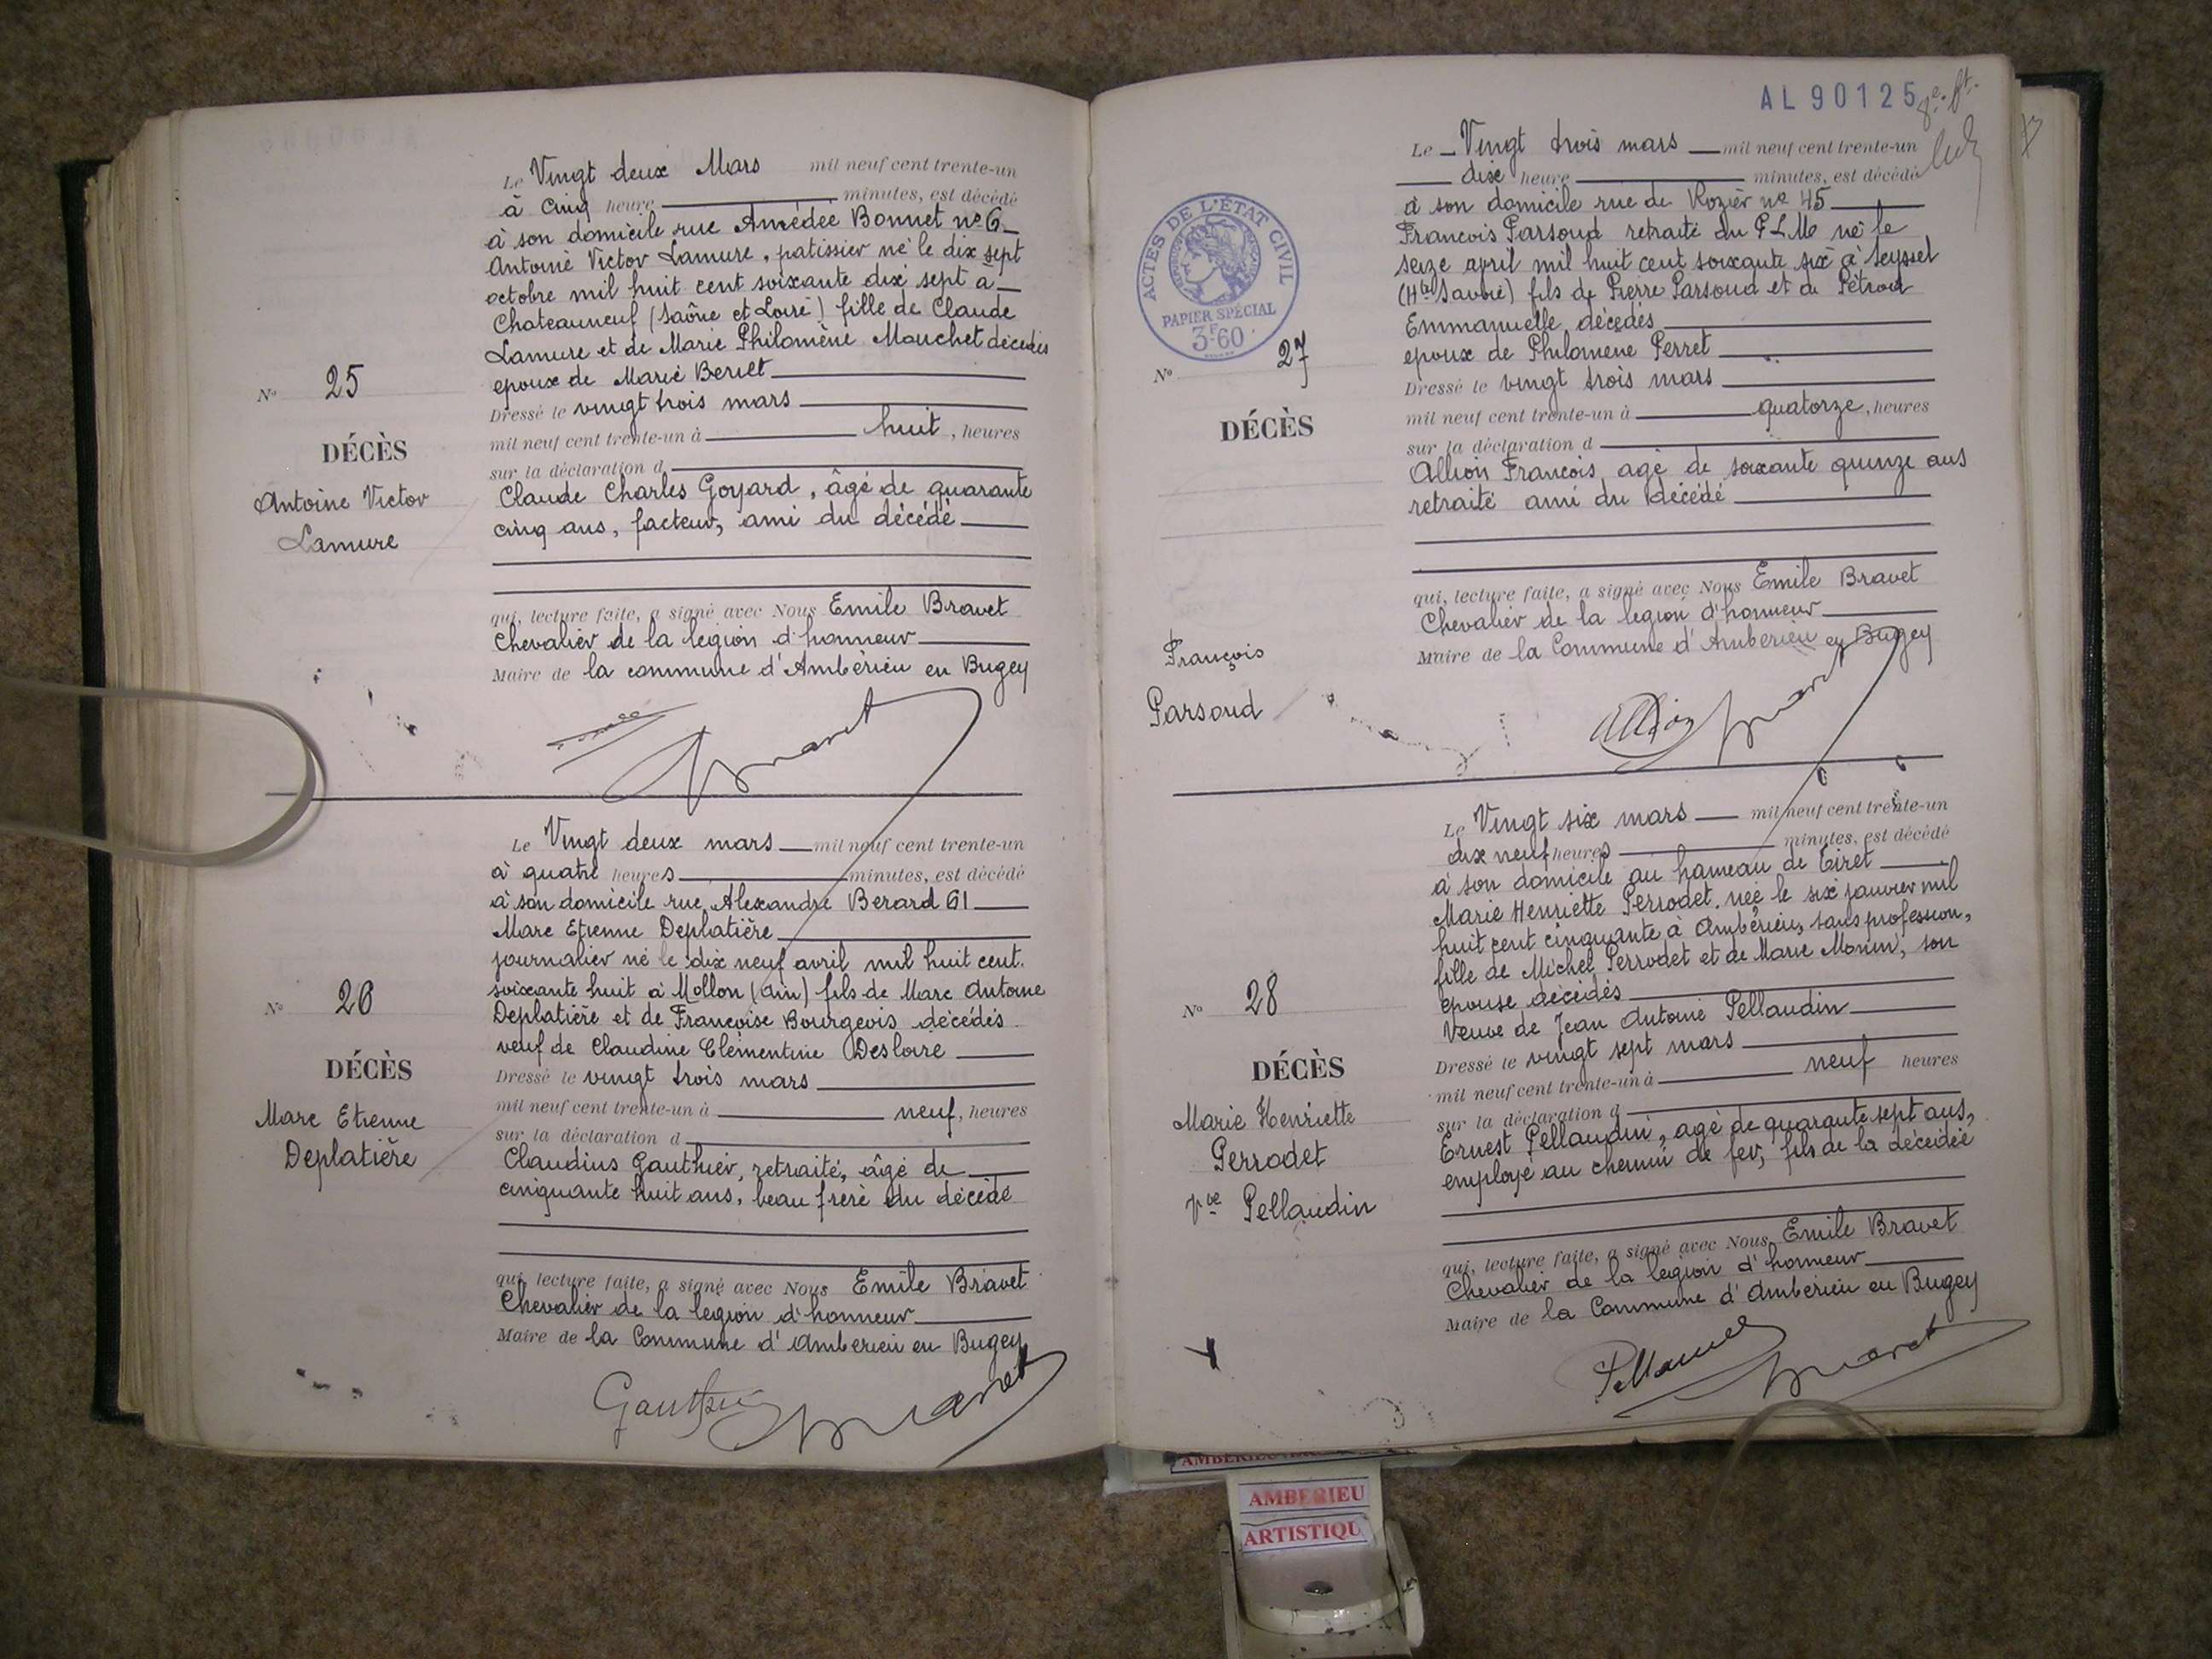 Le Vingt deux Mars mil neuf cent trente-un
à cinq heure minutes, est décédé
à son domicile rue Amédée Bonnet nº 6
Antoine Victor Lamure, patissier né le dix sept
octobre mil huit cent soixante dix sept à
Chateauneuf (Saône et Loire) fille de Claude
Lamure et de Marie Philomène Mouchet décédés
epoux de Marie
Dressé le vingt trois mars
mil neuf cent trente-un à huit, heures
sur la déclaration d
Claude Charles Goyard, âgé de quarante
cinq ans, facteur, ami du décédé
qui, lecture faite, a signé avec Nous Emile Bravet
Chevalier de la legion d'honneur
Maire de la commune d'Ambérieu en Bugey
Nº 25
DÉCÈS
Antoine Victor
Lamure
Le Vingt deux mars mil neuf cent trente-un
à quatre heures minutes, est décédé
à son domicile rue Alexandre Berard 61
Marc Etienne Deplatière
journalier né le dix neuf avril mil huit cent
soixante huit à Mollon (Ain) fils de Marc Antoine
Deplatière et de Françoise Bourgeois décédés
veuf de Claudine Clémentine Desloire
Dressé le vingt trois mars
mil neuf cent trente-un à neuf, heures
sur la déclaration d
Claudius Gauthier, retraité, âgé de
cinquante huit ans, beau frere du décédé
qui, lecture faite, a signé avec Nous Emile Bravet
Chevalier de la legion d'honneur
Maire de la Commune d'Amberieu en Bugey
Gauthier Bravet
Nº 26
DÉCÈS
Marc Etienne
Deplatière
AL 90125
Le Vingt trois mars mil neuf cent trente-un
dixe heure minutes, est décédé
à son domicile rue du Rozier nº 45
Francois Parsoud retraité du P L M né le
seize april mil huit cent soixante six à Seyssel
(Hte Savoie) fils de Pierre Parsoud et de
Emmanuelle décédés
epoux de Philomene Perret
Dressé le vingt trois mars
mil neuf cent trente-un à quatorze, heures
sur la déclaration d
Allion Francois, agé de soixante quinze ans
retraité ami du décédé
qui, lecture faite, a signé avec Nous Emile Bravet
Chevalier de la legion d'honneur
Maire de la Commune d'Amberieu en Bugey
Allion Bravet
ACTES DE L'ÉTAT CIVIL
PAPIER SPÉCIAL
3F60
Nº 27
DÉCÈS
François
Parsoud
Le Vingt six mars mil neuf cent trente-un
dix neuf heures minutes, est décédé
à son domicile au hameau de Tiret
Marie Henriette Perrodet, née le six janvier mil
huit cent cinquante à Ambérieu, sans profession,
fille de Michel Perrodet et de Marie Monin, son
epouse décédés
Veuve de Jean Antoine Pellaudin
Dressé le vingt sept mars
mil neuf cent trente-un à neuf heures
sur la déclaration d
Ernest Pellaudin, agé de quarante sept ans,
employé au chemin de fer, fils de la décédée
qui, lecture faite, a signé avec Nous Emile Bravet
Chevalier de la legion d'honneur
Maire de la Commune d'Amberieu en Bugey
Bravet
Nº 28
DÉCÈS
Marie Henriette
Perrodet
Vve Pellaudin
AMBERIEU
AMBERIEU
ARTISTIQU